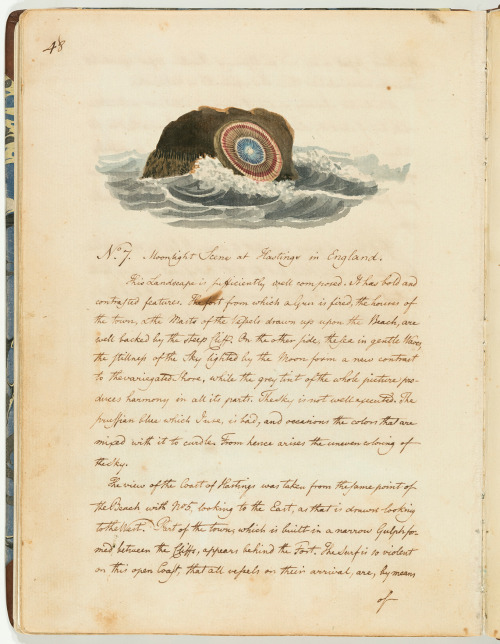 48
No. 7. Moonlight Scene at Hastings in England.
This Landscape is sufficiently well composed. It has bold and
contrasted features. The fort from which a Gun is fired, the houses of
the town, & the Masts of the Vessels drawn up upon the Beach, are
well backed by the steep Cliff. On the other side, the sea in gentle Waves,
the stillness of the Sky lighted by the Moon form a new contrast
to the variegated Shore, while the grey tint of the whole picture pro-
duces harmony in all its parts. The Sky is not well executed. The
prussian blue which I use, is bad, and occasions the colors that are
mixed with it to curdle. From hence arises the uneven coloring of
the Sky.
The view of the Coast of Hastings was taken from the same point of
the Beach with No 5, looking to the East, as that is drawn looking
to the West. Part of the town, which is built in a narrow Gulph for-
med between the Cliffs, appears behind the Fort. The Surf is so violent
on this open Coast, that all vessels on their arrival, are, by means
of